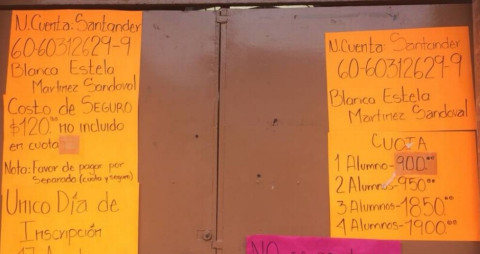 N. Cuenta: Santander
60-60312629-9
Blanca Estela
Martinez Sandoval
Costo de SEGURO
$120.00 no incluido
en cuota
Nota: Favor de pagar por
Separado (cuota y seguro)
Unico Día de
Inscripción
N. Cuenta: Santander
60-60312629-9
Blanca Estela
Martinez Sandoval
CUOTA
1 Alumno-900.00
2 Alumnos-950.00
3 Alumnos-1850.00
4 Alumnos-1900.00